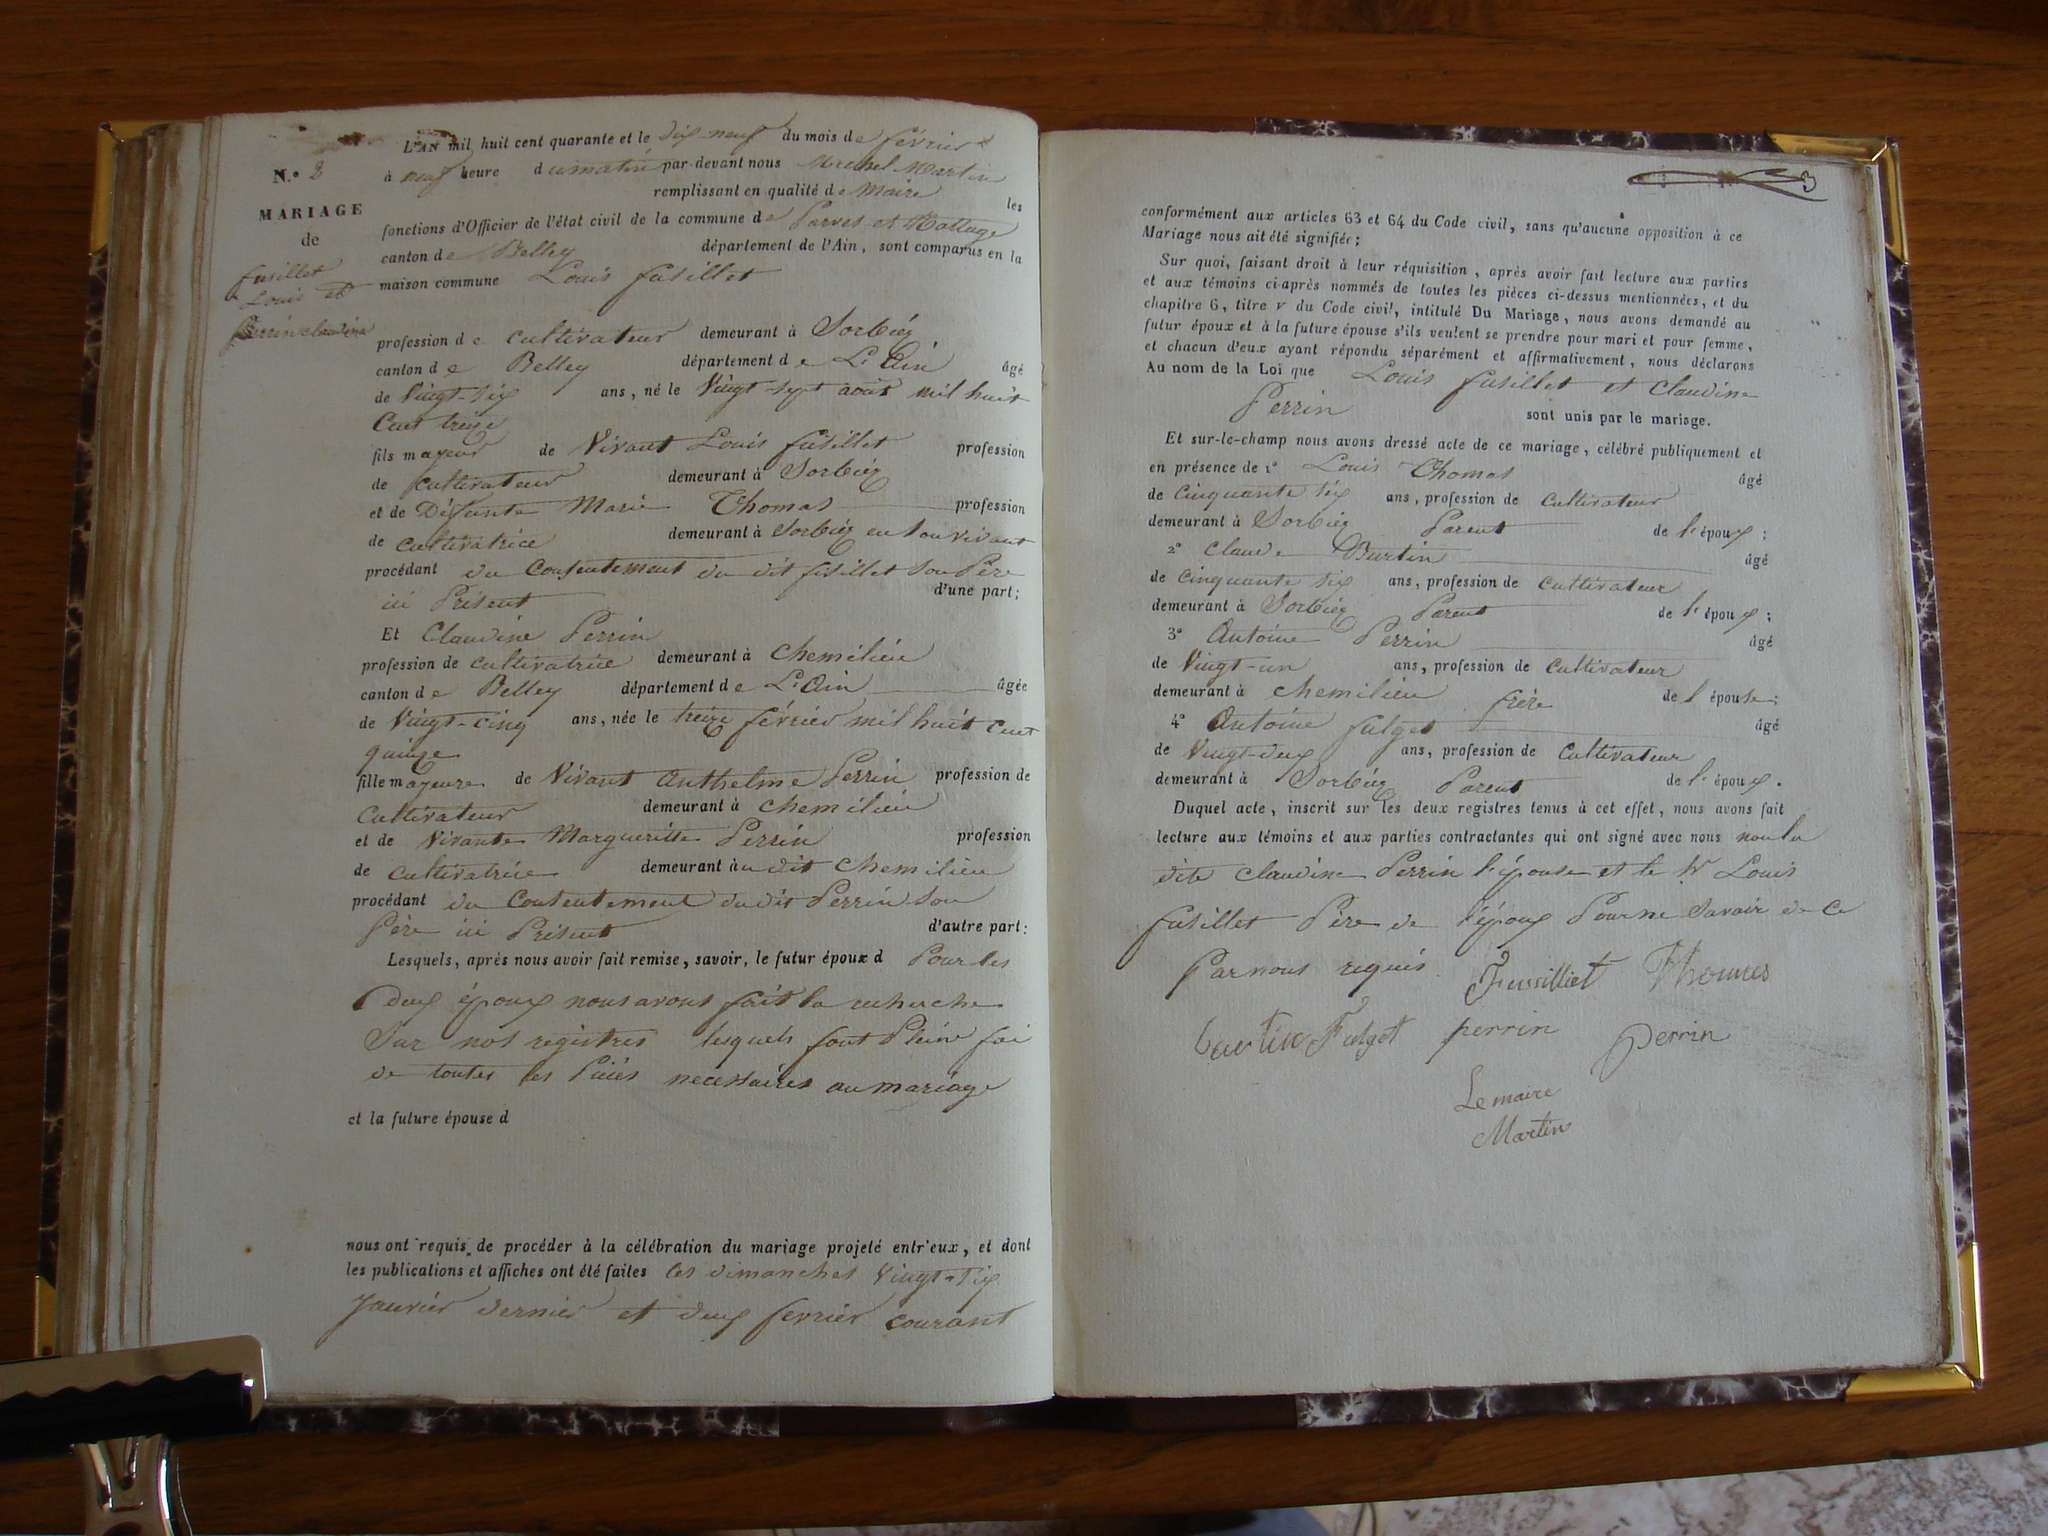 N.º 2
MARIAGE
de
fusillet
Louis et
Perrin claudine
L'AN mil huit cent quarante et le dix-neuf du mois de février
à neuf heure du matin par-devant nous Michel Martin
remplissant en qualité de Maire les
fonctions d'Officier de l'état civil de la commune de Parves et Nattage
canton de Belley département de l'Ain, sont comparus en la
maison commune Louis fusillet
profession de cultivateur demeurant à Sorbiez
canton de Belley département de L'Ain âgé
de Vingt-six ans, né le Vingt-sept août mil huit
Cent treize
fils majeur de Vivant Louis fusillet profession
de cultivateur demeurant à Sorbiez
et de Défunte Marie Thomas profession
de cultivatrice demeurant à Sorbiez en son vivant
procédant du Consentement du dit fusillet son Père
ici Présent d'une part;
Et Claudine Perrin
profession de cultivatrice demeurant à Chemilieu
canton de Belley département de L'Ain âgée
de Vingt-cinq ans, née le treize février mil huit cent
quinze
fille majeure de Vivant Anthelme Perrin profession de
Cultivateur demeurant à Chemilieu
et de Vivante Margueritte Perrin profession
de cultivatrice demeurant àu dit Chemilieu
procédant du Consentement du dit Perrin son
Père ici Présent d'autre part:
Lesquels, après nous avoir fait remise, savoir, le futur époux d Pour les
Deux époux nous avons fait la recherche
Sur nos registres lesquels font Pleine foi
de toutes les Pièces necessaires au mariage
et la future épouse d
nous ont requis de procéder à la célébration du mariage projeté entr'eux, et dont
les publications et affiches ont été faites les dimanches Vingt-six
Janvier dernier et deux fevrier courant
3
conformément aux articles 63 et 64 du Code civil, sans qu'aucune opposition à ce
Mariage nous ait été signifiée;
Sur quoi, faisant droit à leur réquisition, après avoir fait lecture aux parties
et aux témoins ci-après nommés de toutes les pièces ci-dessus mentionnées, et du
chapitre 6, titre v du Code civil, intitulé Du Mariage, nous avons demandé au
futur époux et à la future épouse s'ils veulent se prendre pour mari et pour femme,
et chacun d'eux ayant répondu séparément et affirmativement, nous déclarons
Au nom de la Loi que Louis fusillet et Claudine
Perrin sont unis par le mariage.
Et sur-le-champ nous avons dressé acte de ce mariage, célébré publiquement et
en présence de 1º Louis Thomas âgé
de Cinquante six ans, profession de Cultivateur
demeurant à Sorbiez Parent de l'époux;
2º Claude Burtin âgé
de cinquante six ans, profession de cultivateur
demeurant à Sorbiez Parent de l'époux;
3º Antoine Perrin âgé
de Vingt-un ans, profession de cultivateur
demeurant à chemilieu frère de l'épouse;
4º Antoine fulget âgé
de Vingt-deux ans, profession de Cultivateur
demeurant à Sorbiez Parent de l'époux.
Duquel acte, inscrit sur les deux registres tenus à cet effet, nous avons fait
lecture aux témoins et aux parties contractantes qui ont signé avec nous non la
dite claudine Perrin l'épouse et le Sr Louis
fusillet Père de l'époux Pour ne Savoir de ce
Par nous requis. Fussilliet Thomas
burtin Fulget perrin perrin
Le maire
Martin